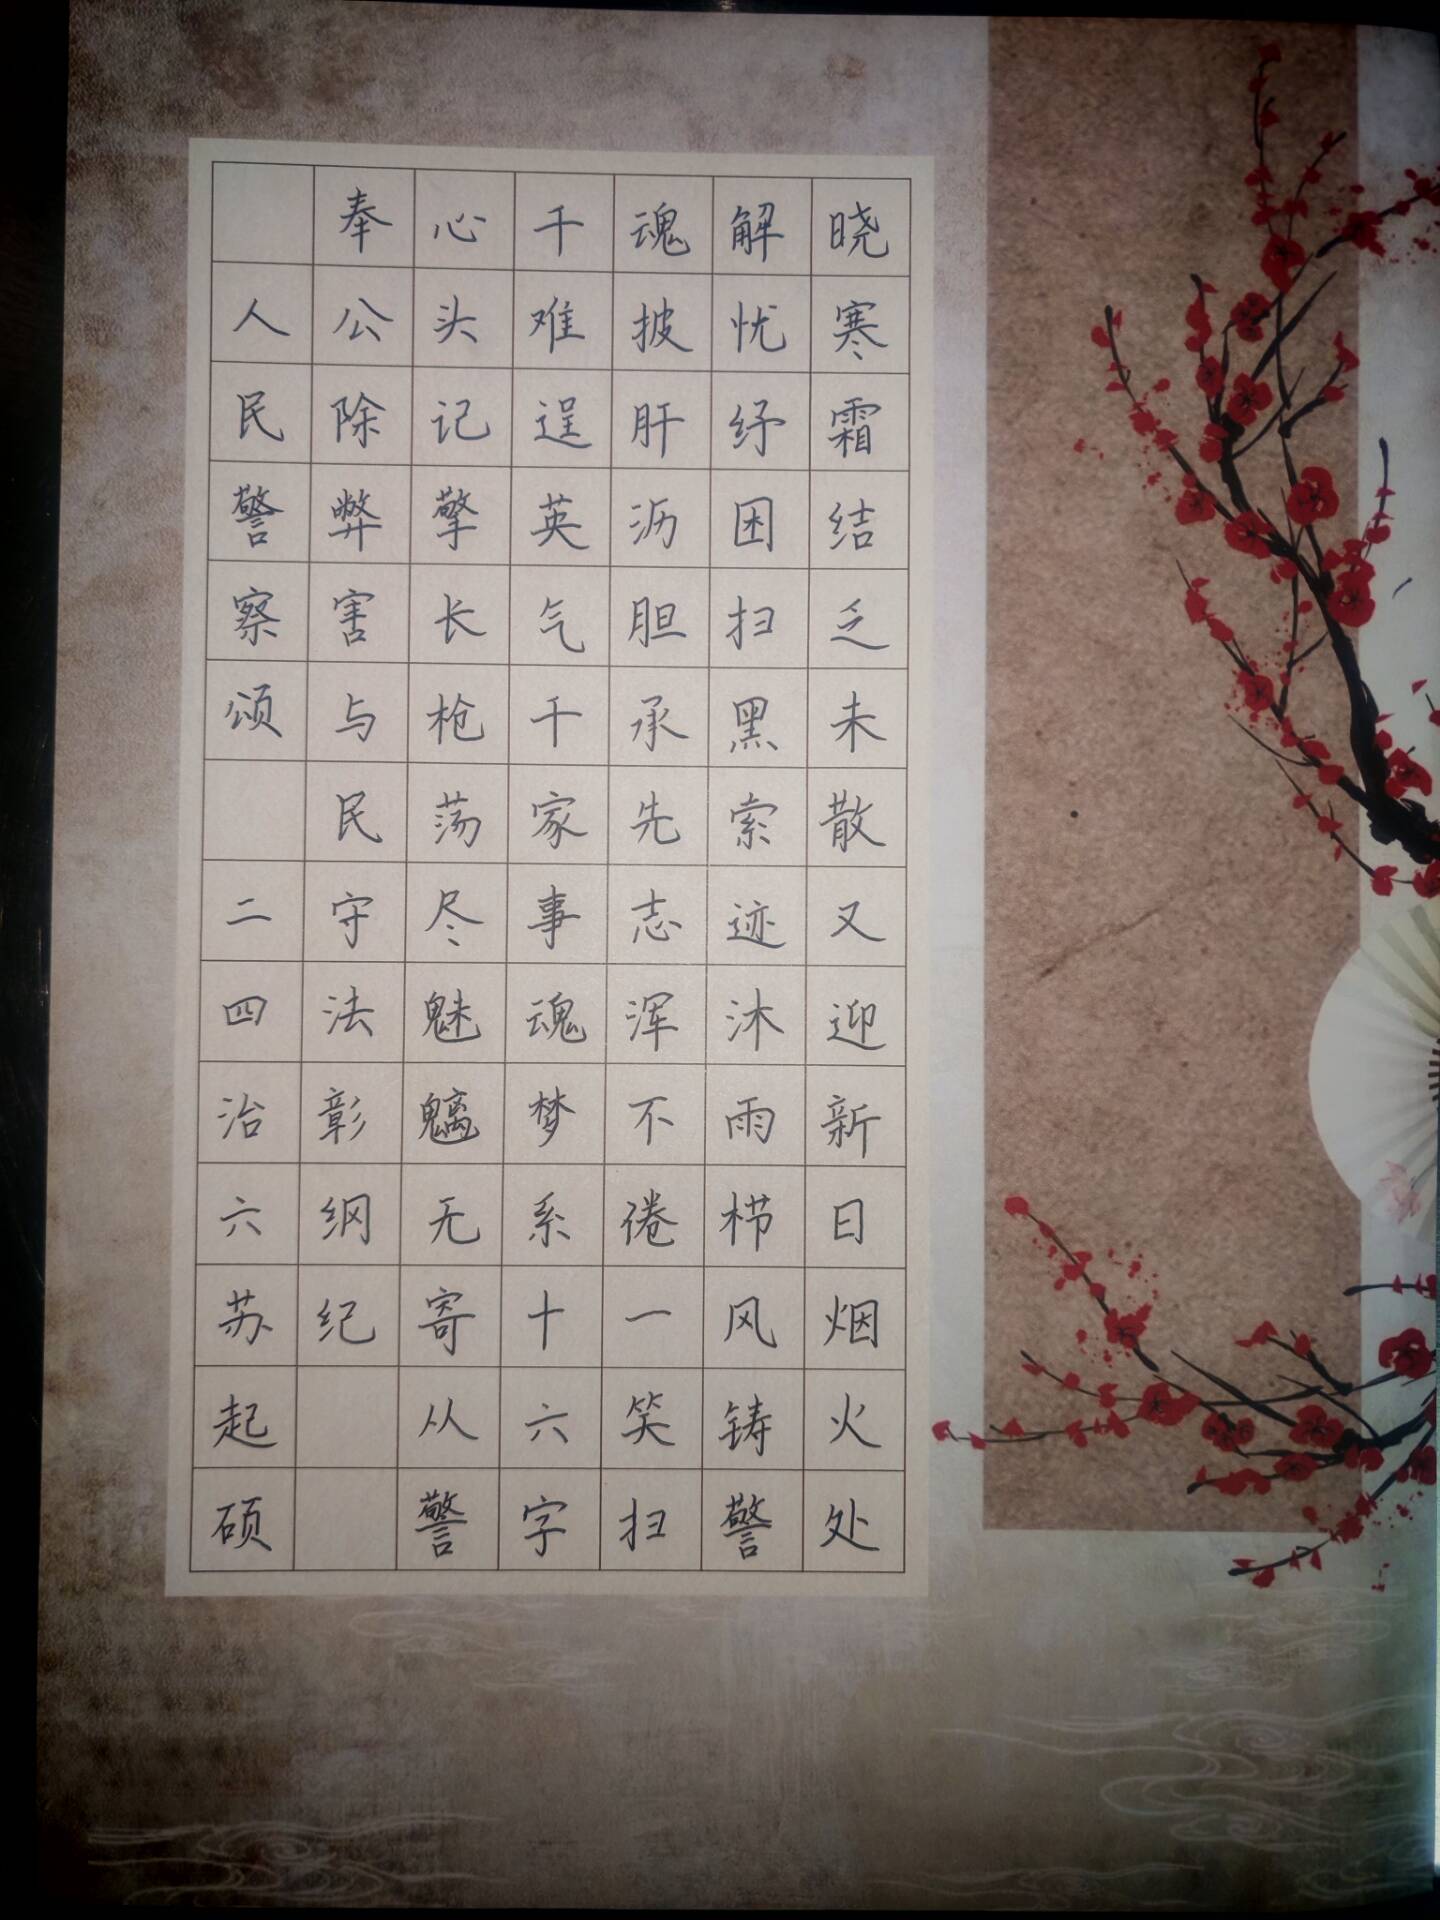 晓寒霜结乏未散又迎新日烟火处
解忧纾困扫黑索迹沐雨栉风铸警
魂披肝沥胆承先志浑不倦一笑扫
千难逞英气千家事魂梦系十六字
心头记擎长枪荡尽魅魑无寄从警
奉公除弊害与民守法彰纲纪
人民警察颂 二四冶六苏起硕